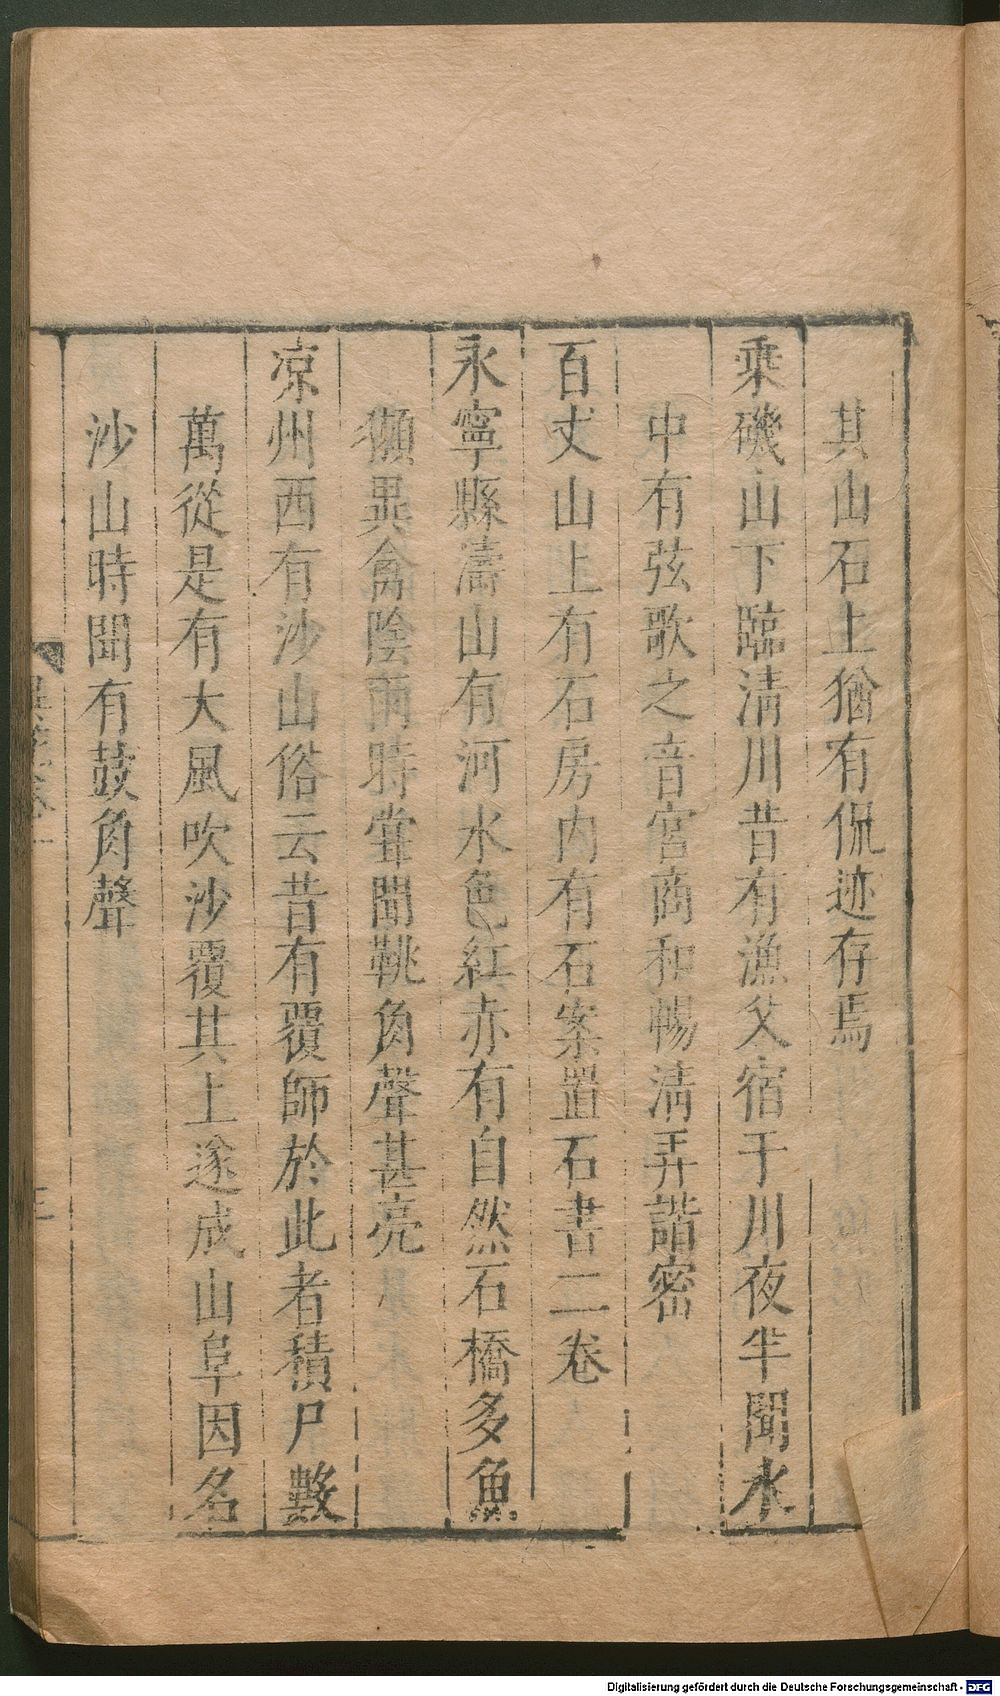 其山石上猶有侃迹存焉
乘磯山下臨清川昔有漁父宿于川夜半聞水
中有弦歌之音宮商和暢清弄諧密
百丈山上有石房内有石案置石書二卷
永寧縣濤山有河水色紅赤有自然石橋多魚
獺異禽陰雨時嘗聞鞉角聲甚亮
凉州西有沙山俗云昔有覆師於此者積尸數
萬從是有大風吹沙覆其上遂成山阜因名
沙山時聞有鼓角聲
Digitalisierung gefördert durch die Deutsche Forschungsgemeinschaft - DFG